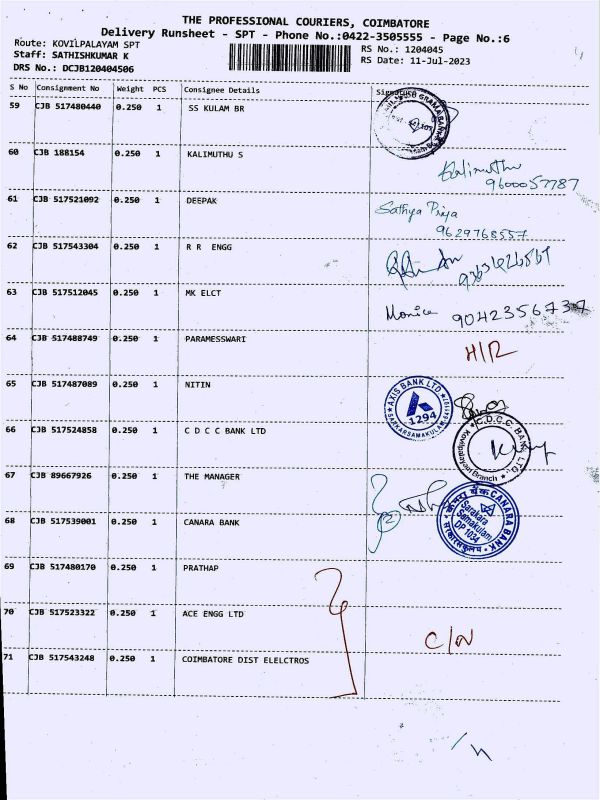 THE PROFESSIONAL COURIERS, COIMBATORE
Delivery Runsheet - SPT - Phone No.:0422-3505555 - Page No.:6
Route: KOVILPALAYAM SPT RS No.: 1204045
Staff: SATHISHKUMAR K RS Date: 11-Jul-2023
DRS No.: DCJB120404506
S No Consignment No Weight PCS Consignee Details Signature
59 CJB 517480440 0.250 1 SS KULAM BR
60 CJB 188154 0.250 1 KALIMUTHU S
Kalimuthu
9600057787
61 CJB 517521092 0.250 1 DEEPAK Sathya Priya
9629768557
62 CJB 517543304 0.250 1 R R ENGG
63 CJB 517512045 0.250 1 MK ELCT Monica 9042356737
64 CJB 517488749 0.250 1 PARAMESSWARI H/R
65 CJB 517487089 0.250 1 NITIN AXIS BANK LTD
1294
SARKARSAMAKULAM
66 CJB 517524858 0.250 1 C D C C BANK LTD C.D.C.C. BANK LTD.,
Kovilpalayam Branch
67 CJB 89667926 0.250 1 THE MANAGER
68 CJB 517539001 0.250 1 CANARA BANK केनरा बैंक CANARA BANK
Sarakara
Samakulam
DP 1034
69 CJB 517480170 0.250 1 PRATHAP
70 CJB 517523322 0.250 1 ACE ENGG LTD C/N
71 CJB 517543248 0.250 1 COIMBATORE DIST ELELCTROS